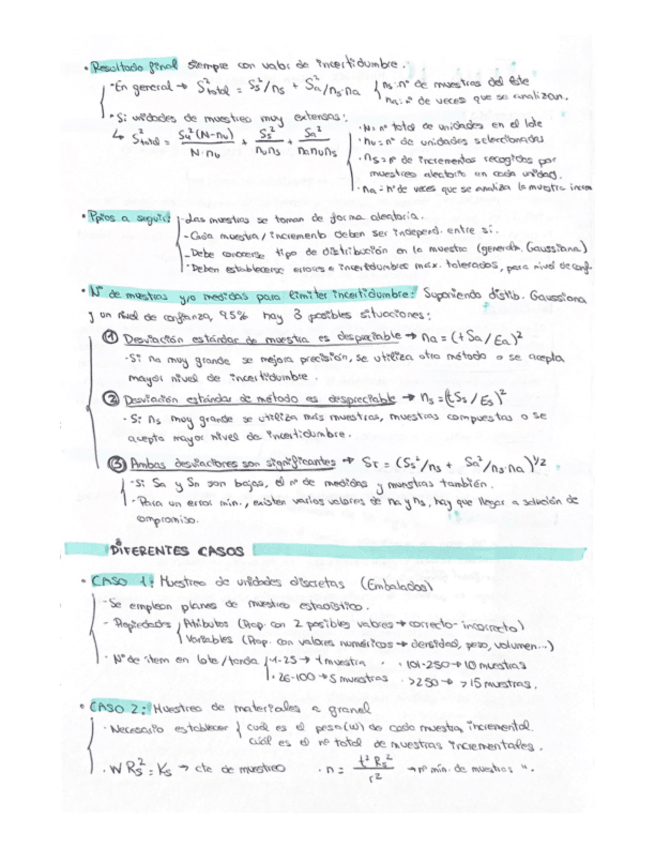 • Resultado final siempre con valor de incertidumbre.
· En general → S²total = Ss²/ns + Sa²/ns·na { ns: nº de muestras del lote
na: nº de veces que se analizan.
· Si unidades de muestreo muy extensas:
↳ S²total = Su²(N-nu)/N·nu + Ss²/nuns + Sa²/nanuns
· N = nº total de unidades en el lote
· nu = nº de unidades seleccionadas
· ns = nº de incrementos recogidos por
muestreo aleatorio en cada unidad.
· na = nº de veces que se analiza la muestra increm
• Ppios a seguir: - Las muestras se toman de forma aleatoria.
- Cada muestra/incremento deben ser independ. entre sí.
- Debe conocerse tipo de distribución en la muestra (generalm. Gaussiana)
- Deben establecerse errores e incertidumbres máx. tolerados, para nivel de conf.
• Nº de muestras y/o medidas para limitar incertidumbre: Suponiendo distib. Gaussiana
y un nivel de confianza, 95% hay 3 posibles situaciones:
① Desviación estándar de muestra es despreciable → na = (t Sa/Ea)²
· Si na muy grande se mejora precisión, se utiliza otro método o se acepta
mayor nivel de incertidumbre.
② Desviación estándar de método es despreciable → ns = (tSs/Es)²
· Si ns muy grande se utiliza más muestras, muestras compuestas o se
acepta mayor nivel de incertidumbre.
③ Ambas desviaciones son significantes → ST = (Ss²/ns + Sa²/ns·na)^1/2
· Si Sa y Sn son bajas, el nº de medidas y muestras también.
· Para un error mín., existen varios valores de na y ns, hay que llegar a solución de
compromiso.
DIFERENTES CASOS
• CASO 1: Muestreo de unidades discretas (Embalados)
- Se emplean planes de muestreo estadístico.
- Propiedades { Atributos (Prop. con 2 posibles valores → correcto-incorrecto)
Variables (Prop. con valores numéricos → densidad, peso, volumen...)
· Nº de item en lote/tanda { · 1-25 → 1 muestra · 101-250 → 10 muestras
· 26-100 → 5 muestras · >250 → >15 muestras.
• CASO 2: Muestreo de materiales a granel
· Necesario establecer { cuál es el peso (w) de cada muestra incremental.
cuál es el nº total de muestras incrementales.
· W Rs² = Ks → cte de muestreo · n = t² Rs²/r² → nº mín. de muestras ".